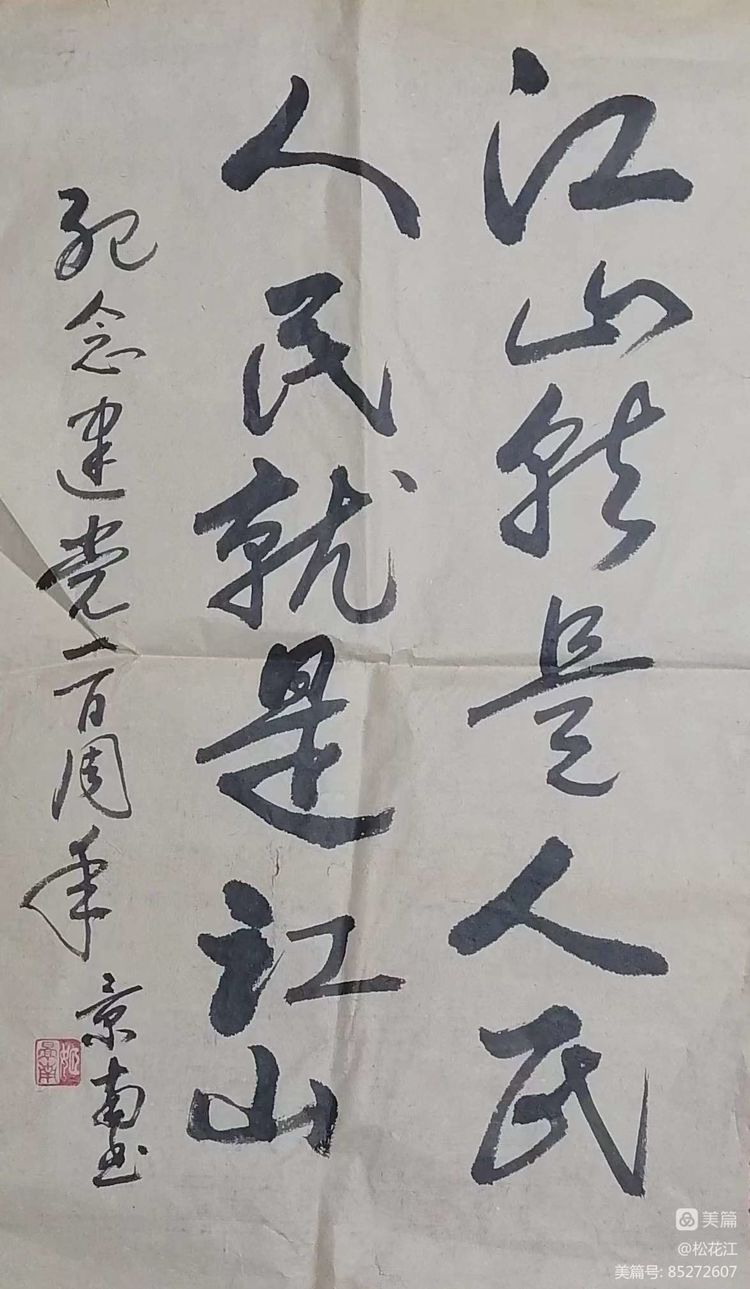 江山就是人民
人民就是江山
纪念建党一百周年
景南书
姬景南
美篇
@松花江
美篇号: 85272607